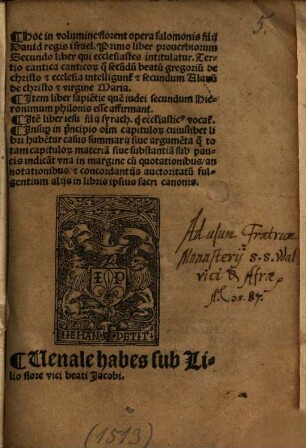 5.
¶Hoc in volumine florent opera salomonis filij
Dauid regis israel. Primo liber prouerbiorum
Secundo liber qui ecclesiastes intitulatur. Ter-
tio cantica canticoꝝ q̄ secūdū beatū gregoriū de
christo & ecclesia intelligunt̃ & secundum Alanū
de christo & virgine Maria.
¶Item liber sapiētie quē iudei secundum Hie-
ronimum philonis esse affirmant.
¶Itē liber iesu filij syrach. q̄ ecclesiastic⁹ vocat̃.
¶Insuꝑ in p̄ncipio oīm capituloꝝ cuiuslibet li
bri habētur casus summarij siue argumēta q̄ to
tam capituloꝝ materiā siue substantiā sub pau
cis indicāt vna in margine cū quotationibus/ an
notationibus/ & concordantijs auctoritatū ful-
gentium alijs in libris ipsius sacri canonis.
Ad usum Fratrum
Monasterij S. S. Vdal
rici & Afrae
A.C. os. 87.
I P
IEHAN PETIT
¶Uenale habes sub Li-
lio flore vici beati Jacobi.
(1513)